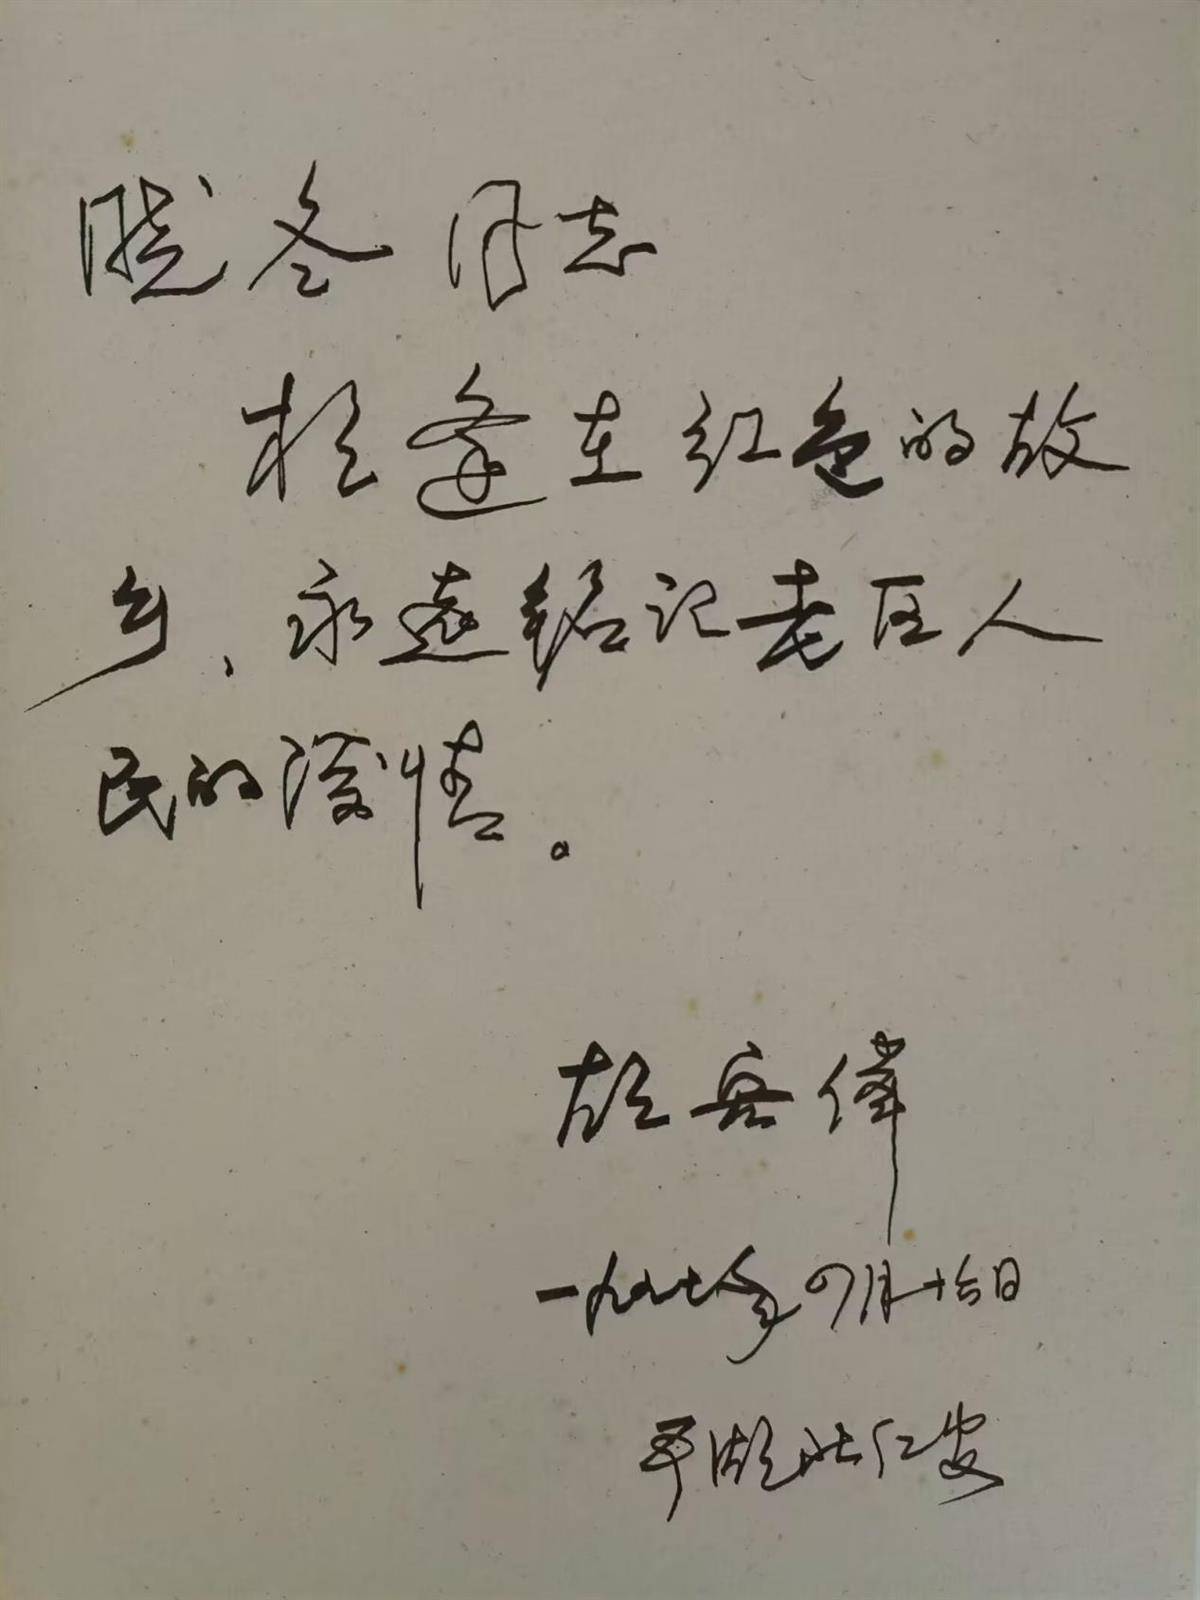 晓冬同志
相逢在红色的故
乡、永远铭记老区人
民的深情。
胡容偉
一九九七年四月十六日
于湖北红安